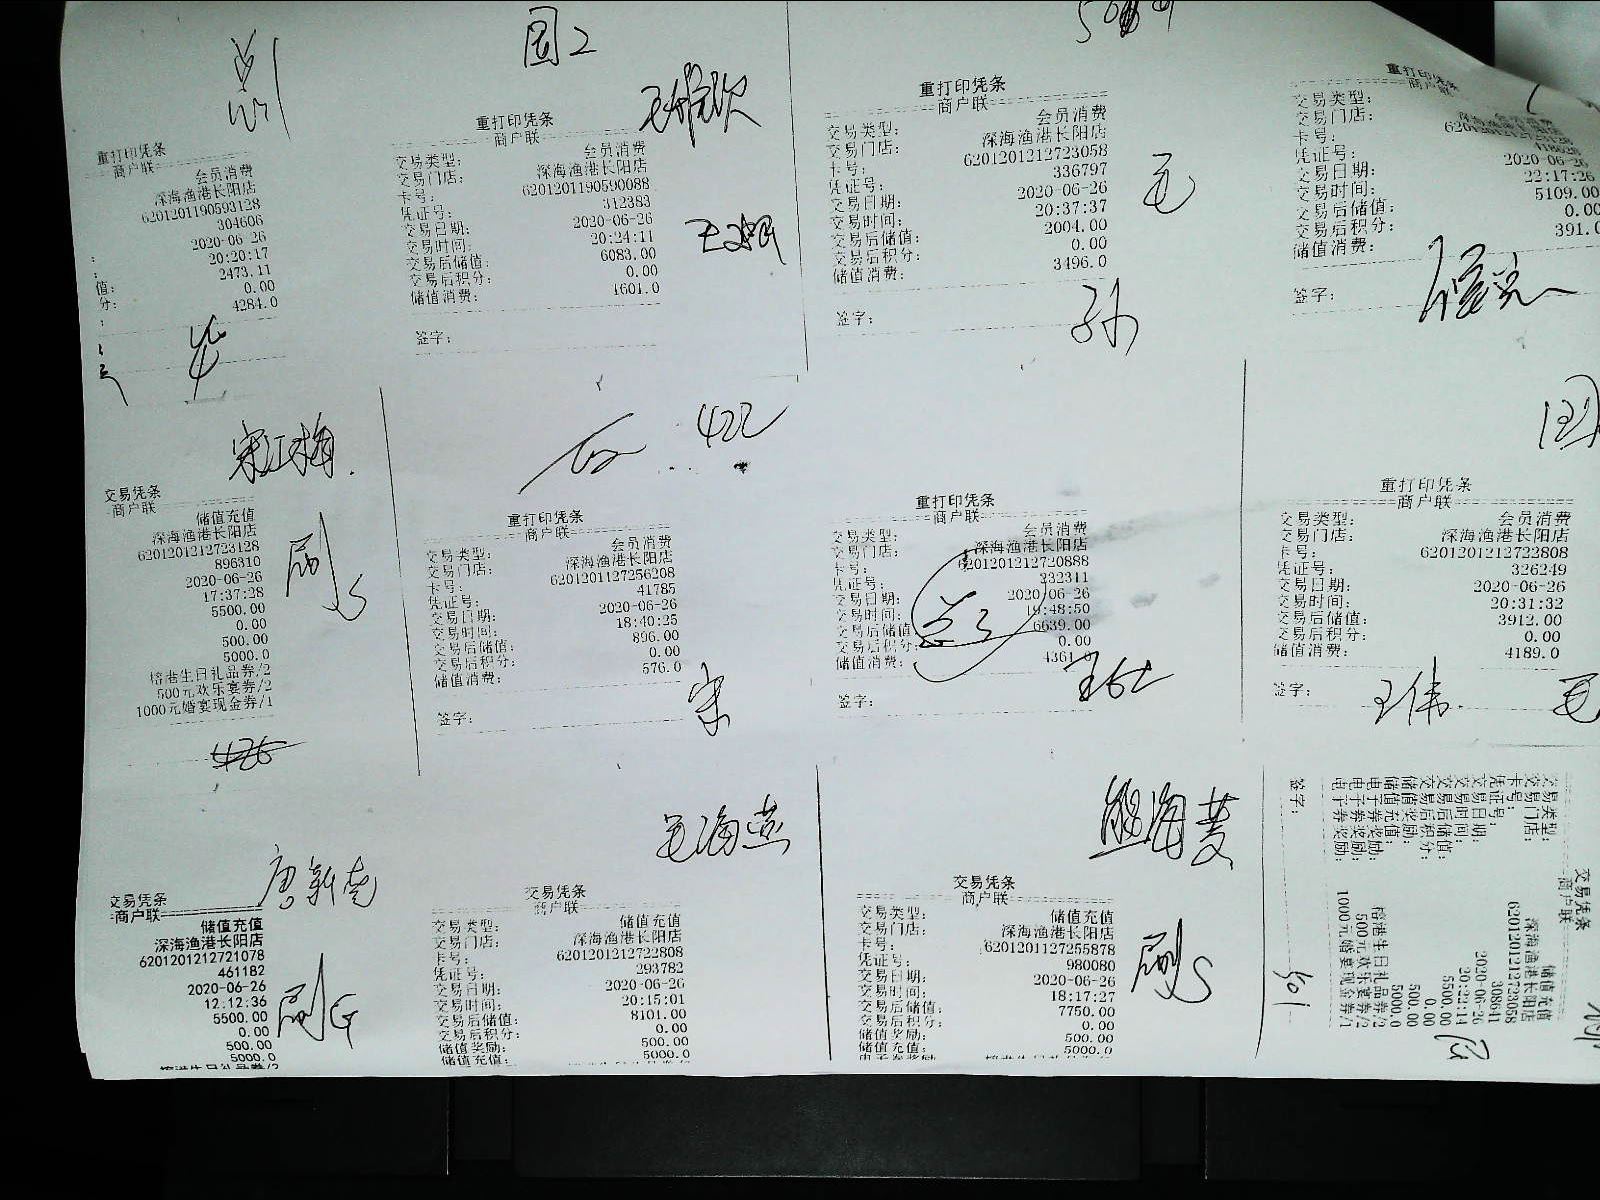 国2
重打印凭条
商户联
会员消费
深海渔港长阳店
6201201190593128
304606
2020-06-26
20:20:17
2473.11
值: 0.00
分: 4284.0
重打印凭条
商户联
交易类型: 会员消费
交易门店: 深海渔港长阳店
卡号: 6201201190590088
凭证号: 312383
交易日期: 2020-06-26
交易时间: 20:24:11
交易后储值: 6083.00
交易后积分: 0.00
储值消费: 1601.0
签字:
重打印凭条
商户联
交易类型: 会员消费
交易门店: 深海渔港长阳店
卡号: 6201201212723058
凭证号: 336797
交易日期: 2020-06-26
交易时间: 20:37:37
交易后储值: 2004.00
交易后积分: 0.00
储值消费: 3496.0
签字:
孙
毛
重打印凭条
商户联
交易类型:
交易门店:
卡号:
凭证号:
交易日期: 2020-06-26
交易时间: 22:17:26
交易后储值: 5109.00
交易后积分: 0.00
储值消费: 391.0
签字:
宋江梅
交易凭条
商户联
储值充值
深海渔港长阳店
6201201212723128
896310
2020-06-26
17:37:28
5500.00
0.00
500.00
5000.0
榕港生日礼品券/2
500元欢乐宴券/2
1000元婚宴现金券/1
刷S
426
422
重打印凭条
商户联
交易类型: 会员消费
交易门店: 深海渔港长阳店
卡号: 6201201127256208
凭证号: 41785
交易日期: 2020-06-26
交易时间: 18:40:25
交易后储值: 896.00
交易后积分: 0.00
储值消费: 576.0
签字: 宋
重打印凭条
商户联
交易类型: 会员消费
交易门店: 深海渔港长阳店
卡号: 6201201212720888
凭证号: 232311
交易日期: 2020-06-26
交易时间: 19:48:50
交易后储值: 6639.00
交易后积分: 0.00
储值消费: 4361.0
签字:
重打印凭条
商户联
交易类型: 会员消费
交易门店: 深海渔港长阳店
卡号: 6201201212722808
凭证号: 326249
交易日期: 2020-06-26
交易时间: 20:31:32
交易后储值: 3912.00
交易后积分: 0.00
储值消费: 4189.0
签字: 王伟 毛
交易凭条
商户联
储值充值
深海渔港长阳店
6201201212721078
461182
2020-06-26
12:12:36
5500.00
0.00
500.00
5000.0
榕港生日礼品券/2
刷G
毛海燕
交易凭条
商户联
交易类型: 储值充值
交易门店: 深海渔港长阳店
卡号: 6201201212722808
凭证号: 293782
交易日期: 2020-06-26
交易时间: 20:15:01
交易后储值: 8101.00
交易后积分: 0.00
储值奖励: 500.00
储值充值: 5000.0
熊海菱
交易凭条
商户联
交易类型: 储值充值
交易门店: 深海渔港长阳店
卡号: 6201201127255878
凭证号: 980080
交易日期: 2020-06-26
交易时间: 18:17:27
交易后储值: 7750.00
交易后积分: 0.00
储值奖励: 500.00
储值充值: 5000.0
刷S
交易凭条
商户联
交易类型: 储值充值
交易门店: 深海渔港长阳店
卡号: 6201201212723058
凭证号: 308641
交易日期: 2020-06-26
交易时间: 20:22:14
交易后储值: 5500.00
交易后积分: 0.00
储值奖励: 500.00
储值充值: 5000.0
电子券奖励: 榕港生日礼品券/2
电子券奖励: 500元欢乐宴券/2
电子券奖励: 1000元婚宴现金券/1
签字: